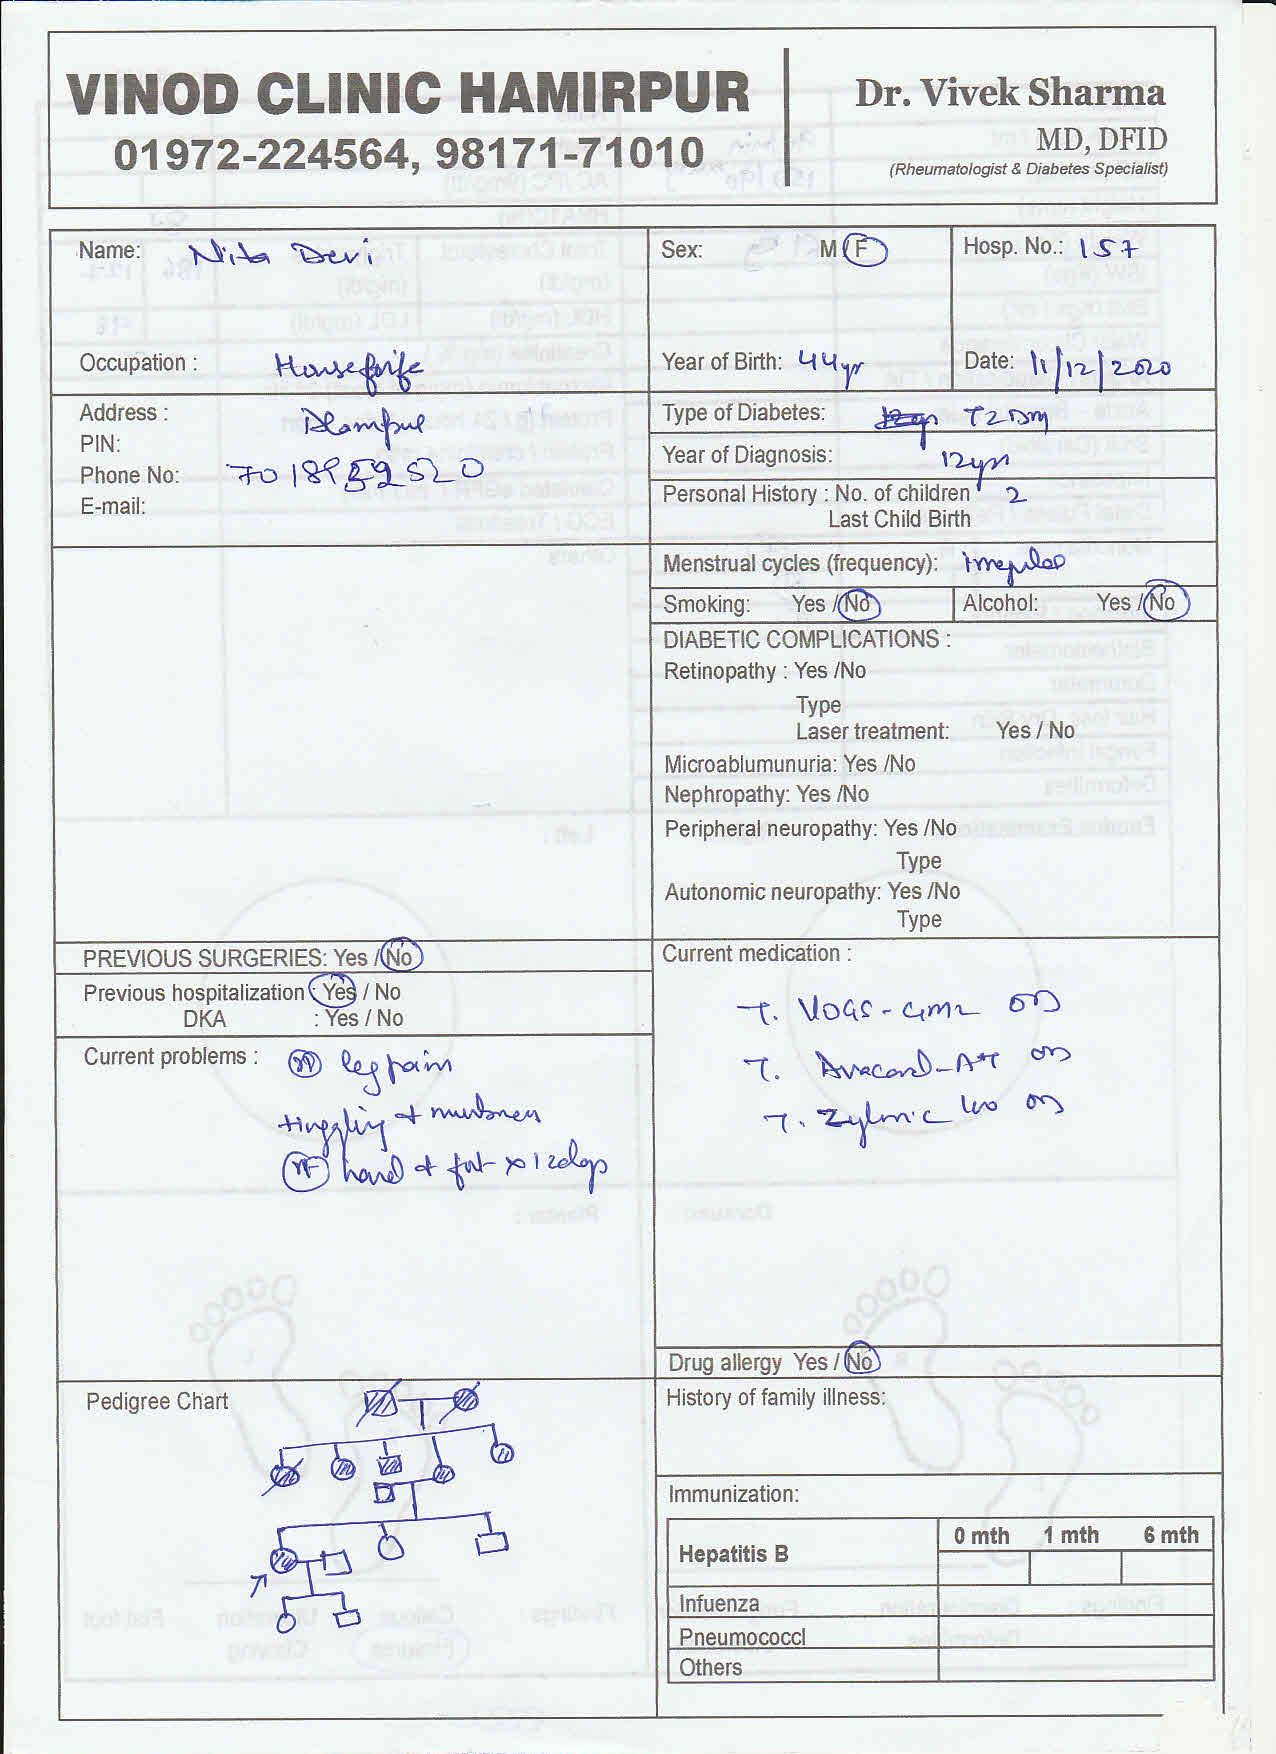 VINOD CLINIC HAMIRPUR
01972-224564, 98171-71010
Dr. Vivek Sharma
MD, DFID
(Rheumatologist & Diabetes Specialist)
Name: Nita Devi
Sex: M/F
Hosp. No.: 157
Occupation : Housewife
Year of Birth: 44yr
Date: 11/12/2020
Address :
PIN:
Phone No:
E-mail:
Type of Diabetes: T2DM
Year of Diagnosis: 12yr
Personal History : No. of children 2
Last Child Birth
Menstrual cycles (frequency): irregular
Smoking: Yes /No
Alcohol: Yes /No
DIABETIC COMPLICATIONS :
Retinopathy : Yes /No
Type
Laser treatment: Yes / No
Microablumunuria: Yes /No
Nephropathy: Yes /No
Peripheral neuropathy: Yes /No
Type
Autonomic neuropathy: Yes /No
Type
PREVIOUS SURGERIES: Yes /No
Previous hospitalization : Yes / No
DKA : Yes / No
Current problems : leg pain
tinggling + numbness
hand + foot x 12days
Current medication :
T. VOGS-GM2 OD
T. Avacard-AT OD
T. Zyloric 100 OD
Drug allergy Yes / No
Pedigree Chart
History of family illness:
Immunization:
Hepatitis B
0 mth 1 mth 6 mth
Infuenza
Pneumococcl
Others